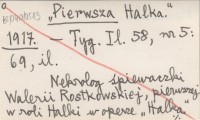 „Pierwsza Halka."
1917. – Tyg. Il. 58, nr 5:
69, il.
Nekrolog śpiewaczki
Walerii Rostkowskiej, pierwszej
w roli Halki w operze „Halka"